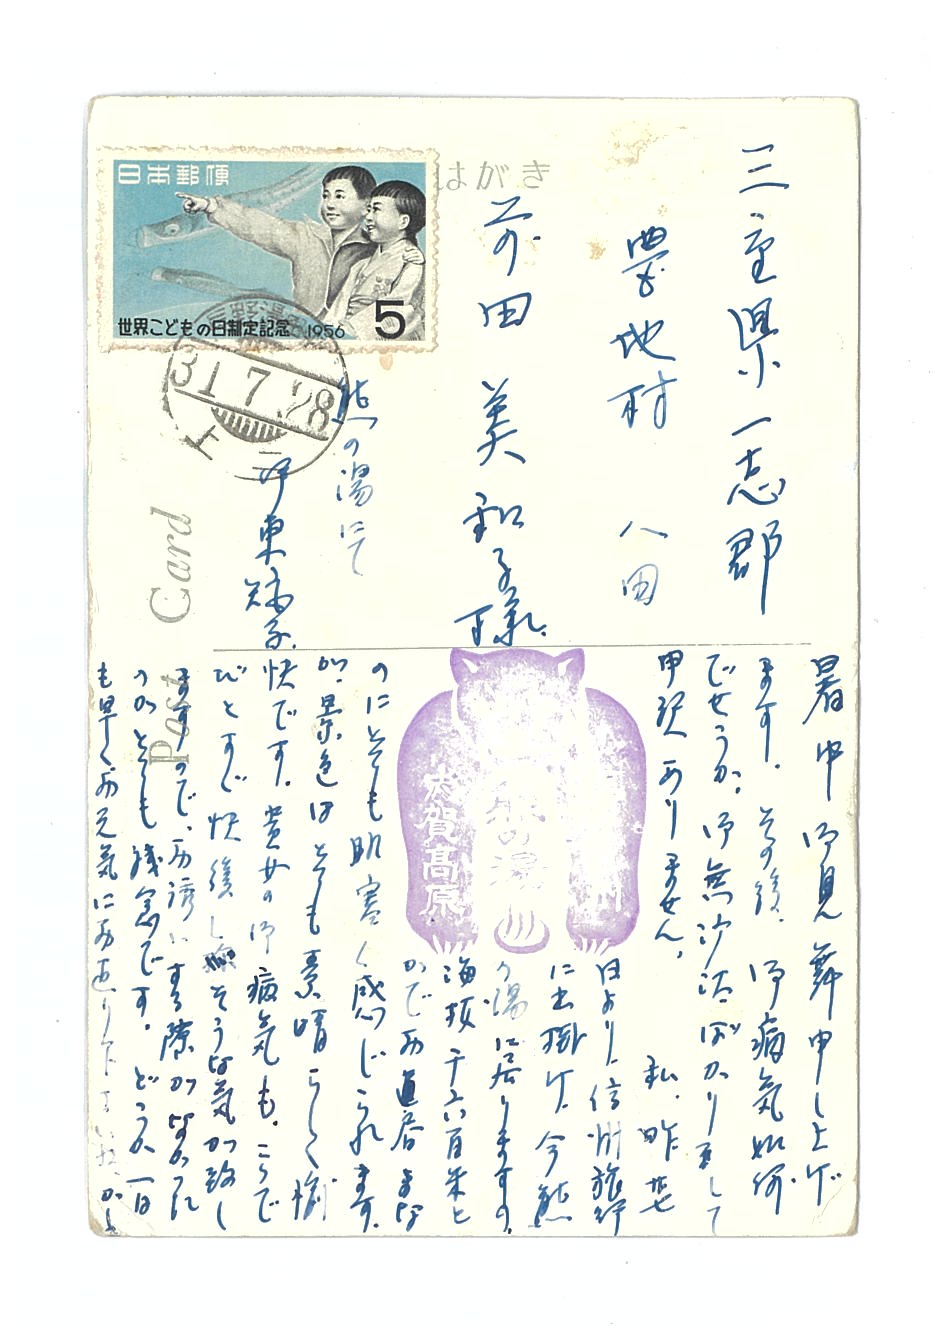 はがき
日本郵便
世界こどもの日制定記念 1956
5
31.7.28
Post Card
三重県一志郡
豊地村 八田
前田美和子様
熊の湯にて
伊東
暑中御見舞申し上げ
ます。その後、御病気如何
でせうか。御無沙汰ばかりまして
申訳ありません。
私、昨廿七
日より、信州旅行
に出掛け、今熊
の湯に居りますの。
海抜千六百米と
かで
のにとても肌寒く感じられます。
が、景色はとても素晴らしく愉
快です。貴女の御病気も、こゝで
びとすぢ快復し そうな気が致し
ますので、お誘いする隙がなかった
のがとても残念です。どうか一日
も早くお元気にお
志賀高原
熊の湯